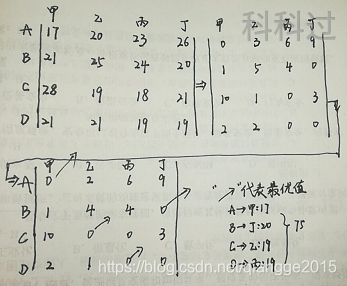 科科过
甲 乙 丙 丁
A 17 20 23 26
B 21 25 24 20
C 28 19 18 21
D 21 21 19 19
⇒
甲 乙 丙 丁
0 3 6 9
1 5 4 0
10 1 0 3
2 2 0 0
⇒
甲 乙 丙 丁
A 0 2 6 9
B 1 4 4 0
C 10 0 0 3
D 2 1 0 0
"→"代表最优值
A→甲:17
B→丁:20
C→乙:19
D→丙:19
75
https://blog.csdn.net/qiangge2015